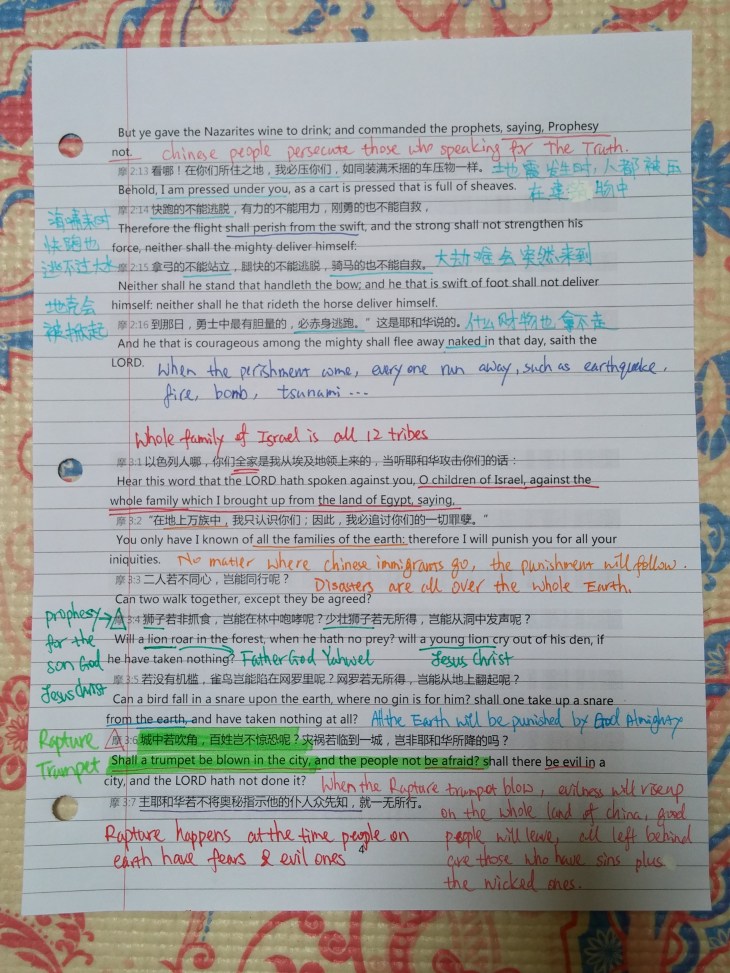 But ye gave the Nazarites wine to drink; and commanded the prophets, saying, Prophesy
not. chinese people persecute those who speaking for The Truth.
摩 2:13 看哪！在你们所住之地，我必压你们，如同装满禾捆的车压物一样。地震发生时，人都被压
Behold, I am pressed under you, as a cart is pressed that is full of sheaves. 在 物中
海啸来时
快跑也
逃不过大水
摩 2:14 快跑的不能逃脱，有力的不能用力，刚勇的也不能自救，
Therefore the flight shall perish from the swift, and the strong shall not strengthen his
force, neither shall the mighty deliver himself:
摩 2:15 拿弓的不能站立，腿快的不能逃脱，骑马的也不能自救。大劫难会突然来到
Neither shall he stand that handleth the bow; and he that is swift of foot shall not deliver
himself: neither shall he that rideth the horse deliver himself.
地壳会
被掀起
摩 2:16 到那日，勇士中最有胆量的，必赤身逃跑。”这是耶和华说的。什么财物也拿不走
And he that is courageous among the mighty shall flee away naked in that day, saith the
LORD. When the perishment come, every one run away, such as earthquake,
fire, bomb, tsunami ...
Whole family of Israel is all 12 tribes
摩 3:1 以色列人哪，你们全家是我从埃及地领上来的，当听耶和华攻击你们的话：
Hear this word that the LORD hath spoken against you, O children of Israel, against the
whole family which I brought up from the land of Egypt, saying,
摩 3:2 “在地上万族中，我只认识你们；因此，我必追讨你们的一切罪孽。”
You only have I known of all the families of the earth: therefore I will punish you for all your
iniquities. No matter where chinese immigrants go, the punishment will follow.
摩 3:3 二人若不同心，岂能同行呢？ Disasters are all over the whole Earth.
Can two walk together, except they be agreed?
prophesy
for the
son God
Jesus Christ
摩 3:4 狮子若非抓食，岂能在林中咆哮呢？少壮狮子若无所得，岂能从洞中发声呢？
Will a lion roar in the forest, when he hath no prey? will a young lion cry out of his den, if
he have taken nothing? Father God Yahwel Jesus Christ
摩 3:5 若没有机槛，雀鸟岂能陷在网罗里呢？网罗若无所得，岂能从地上翻起呢？
Can a bird fall in a snare upon the earth, where no gin is for him? shall one take up a snare
from the earth, and have taken nothing at all? All the Earth will be punished by God Almighty
Rapture
Trumpet
摩 3:6 城中若吹角，百姓岂不惊恐呢？灾祸若临到一城，岂非耶和华所降的吗？
Shall a trumpet be blown in the city, and the people not be afraid? shall there be evil in a
city, and the LORD hath not done it? When the Rapture trumpet blow, evilness will rise up
摩 3:7 主耶和华若不将奥秘指示他的仆人众先知，就一无所行。
on the whole land of china, good
people will leave, all left behind
are those who have sins plus
the wicked ones.
Rapture happens at the time people on
earth have fears & evil ones
4